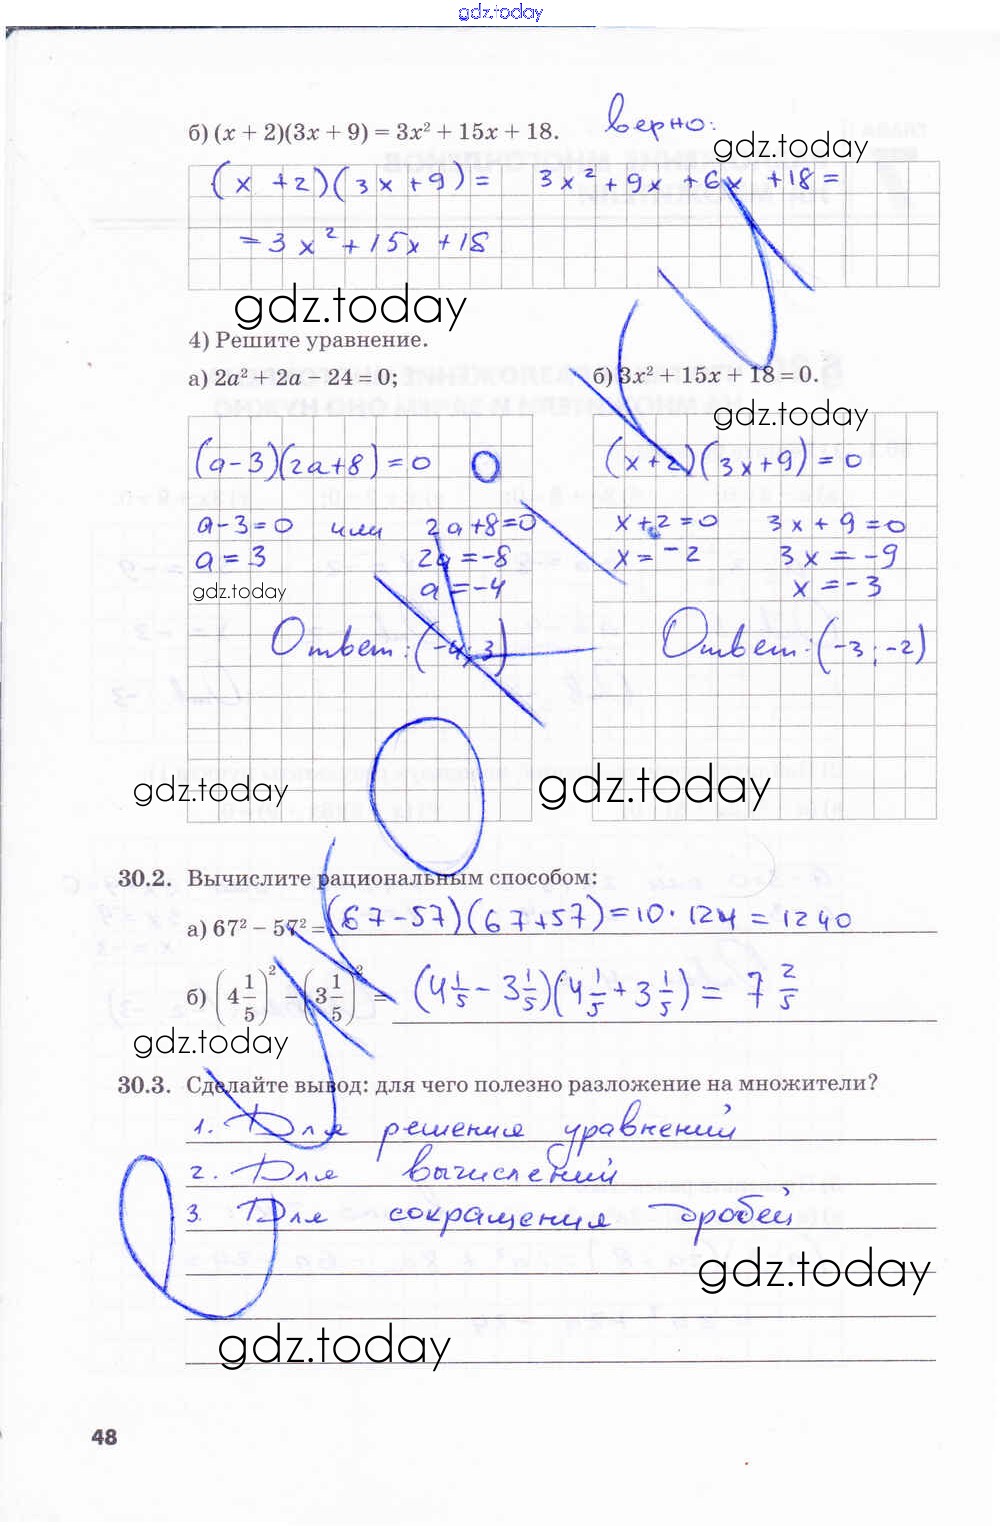 gdz.today
б) (x + 2)(3x + 9) = 3x² + 15x + 18. верно:
gdz.today
(x +2)(3x+9) = 3x²+9x +6x +18 =
= 3x²+15x +18
gdz.today
4) Решите уравнение.
а) 2a² + 2a − 24 = 0; б) 3x² + 15x + 18 = 0.
gdz.today
(a-3)(2a+8)=0 (x+2)(3x+9)=0
a-3=0 или 2a+8=0 x+2=0 3x+9=0
a=3 2a=-8 x=-2 3x=-9
gdz.today a=-4 x=-3
Ответ: (-4;3) Ответ: (-3;-2)
gdz.today gdz.today
30.2. Вычислите рациональным способом:
а) 67² − 57² = (67-57)(67+57)=10·124=1240
б) (4 1/5)² − (3 1/5)² = (4 1/5 - 3 1/5)(4 1/5 + 3 1/5) = 7 2/5
gdz.today
30.3. Сделайте вывод: для чего полезно разложение на множители?
1. Для решения уравнений
2. Для вычислений
3. Для сокращения дробей
gdz.today
gdz.today
48